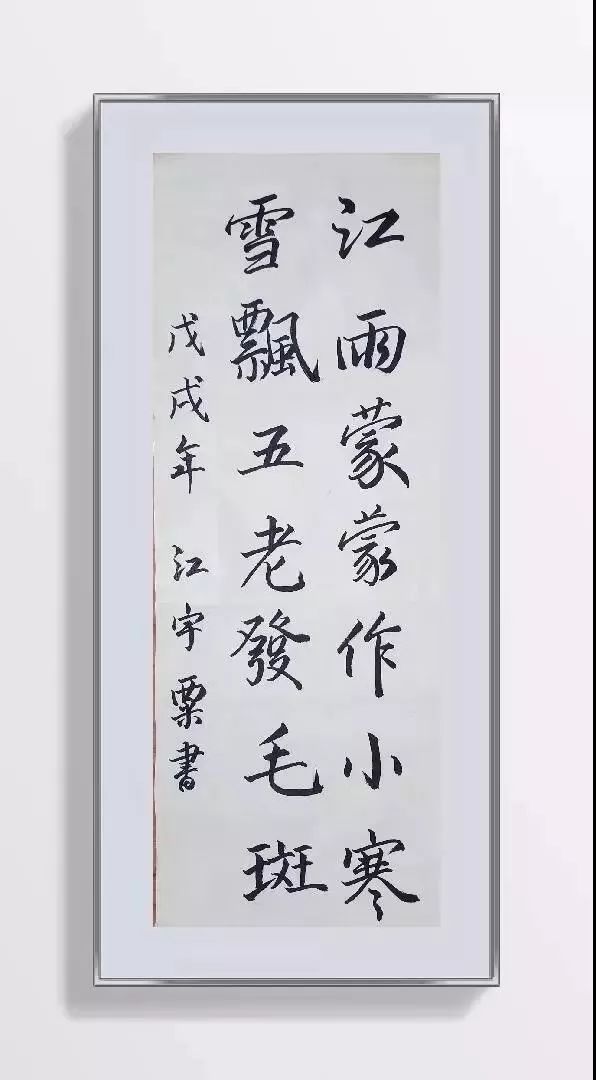 江雨蒙蒙作小寒
雪飄五老發毛斑
戊戌年 江宇粟書